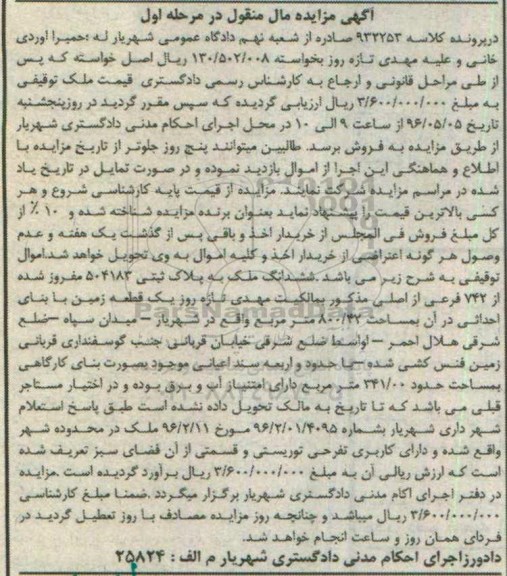 آگهی مزایده مال منقول در مرحله اول
درپرونده کلاسه ۹۳۲۲۵۳ صادره از شعبه نهم دادگاه عمومی شهریار له :حمیرا اوردی
خانی و علیه مهدی تازه روز بخواسته ۱۳۰/۵۰۲/۰۰۸ ریال اصل خواسته که پس
از طی مراحل قانونی و ارجاع به کارشناس رسمی دادگستری قیمت ملک توقیفی
به مبلغ ۳/۶۰۰/۰۰۰/۰۰۰ ریال ارزیابی گردیده که سپس مقرر گردید در روزپنجشنبه
تاریخ ۹۶/۰۵/۰۵ از ساعت ۹ الی ۱۰ در محل اجرای احکام مدنی دادگستری شهریار
از طریق مزایده به فروش برسد. طالبین میتوانند پنج روز جلوتر از تاریخ مزایده با
اطلاع و هماهنگی این اجرا از اموال بازدید نموده و در صورت تمایل در تاریخ یاد
شده در مراسم مزایده شرکت نمایند. مزایده از قیمت پایه کارشناسی شروع و هر
کسی بالاترین قیمت را پیشنهاد نماید بعنوان برنده مزایده شناخته شده و ۱۰ ٪ از
کل مبلغ فروش فی المجلس از خریدار اخذ و باقی پس از گذشت یک هفته و عدم
وصول هر گونه اعتراضی از خریدار اخذ و کلیه اموال به وی تحویل خواهد شد.اموال
توقیفی به شرح زیر می باشد .ششدانگ ملک به پلاک ثبتی ۵۰۴۱۸۳ مفروز شده
از ۷۴۲ فرعی از اصلی مذکور بمالکیت مهدی تازه روز یک قطعه زمین با بنای
احداثی در آن بمساحت ۸۰۰/۴۳ متر مربع واقع در شهریار – میدان سپاه –ضلع
شرقی هلال احمر – اواسط ضلع شرقی خیابان قربانی جنب گوسفنداری قربانی
زمین فنس کشی شده با حدود و اربعه سند اعیانی موجود بصورت بنای کارگاهی
بمساحت حدود ۳۴۱/۰۰ متر مربع دارای امتیاز آب و برق بوده و در اختیار مستاجر
قبلی می باشد که تا تاریخ به مالک تحویل داده نشده است طبق پاسخ استعلام
شهر داری شهریار بشماره ۹۶/۲/۰۱/۴۰۹۵ مورخ ۹۶/۲/۱۱ ملک در محدوده شهر
واقع شده و دارای کاربری تفرحی توریستی و قسمتی از آن فضای سبز تعریف شده
است که ارزش ریالی آن به مبلغ ۳/۶۰۰/۰۰۰/۰۰۰ ریال برآورد گردیده است .مزایده
در دفتر اجرای اکام مدنی دادگستری شهریار برگزار میگردد .ضمنا مبلغ کارشناسی
۳/۶۰۰/۰۰۰/۰۰۰ ریال میباشد و چنانچه روز مزایده مصادف با روز تعطیل گردید در
فردای همان روز و ساعت انجام خواهد شد.
دادورزاجرای احکام مدنی دادگستری شهریار م الف : ۲۵۸۲۴
ParsNamadData